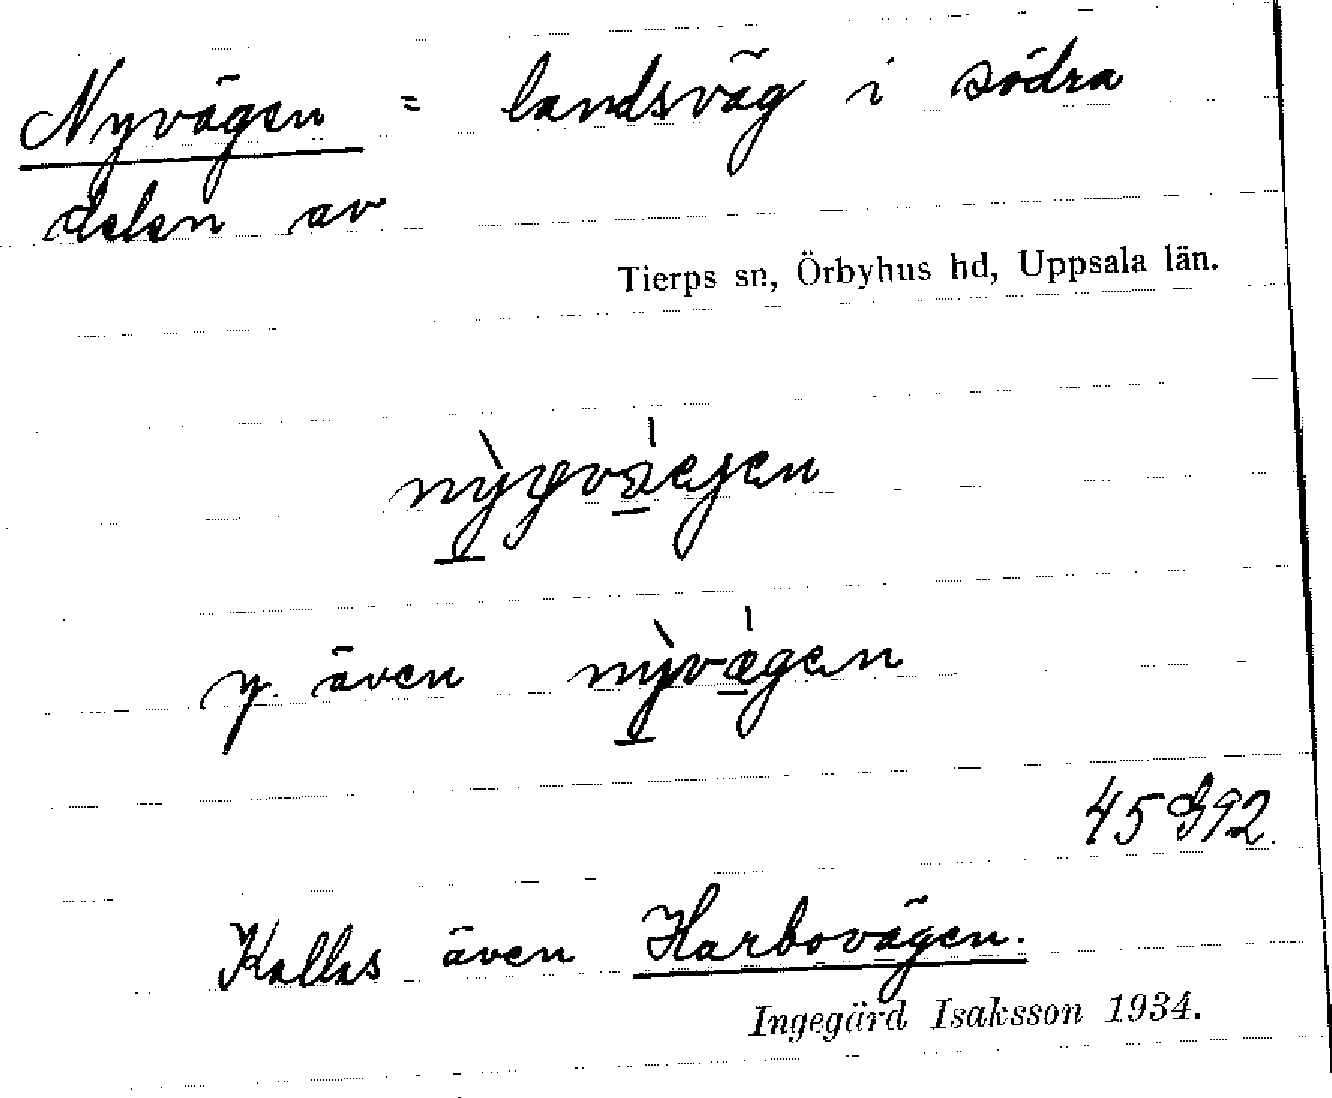 Nyvägen = landsväg i södra
delen av
Tierps sn, Örbyhus hd, Uppsala län.
y. även nỳvǽgen
Kallas även Harbovägen.
Ingegärd Isaksson 1934.